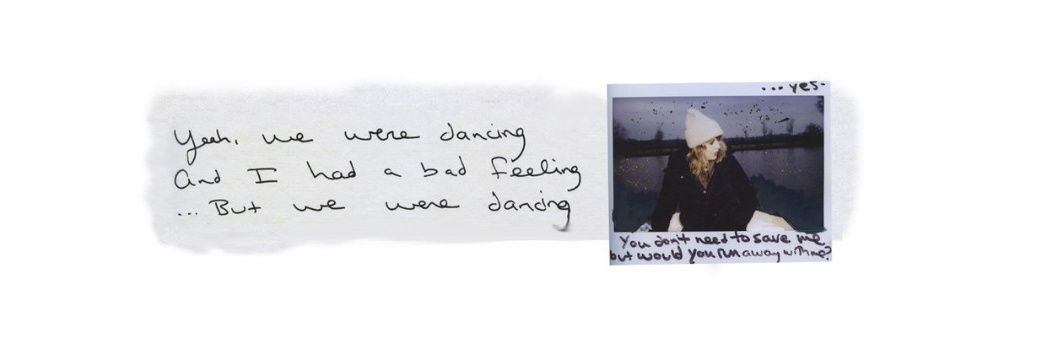 Yeah, we were dancing
And I had a bad feeling
... But we were dancing
... yes.
You don't need to save me
but would you run away with me?